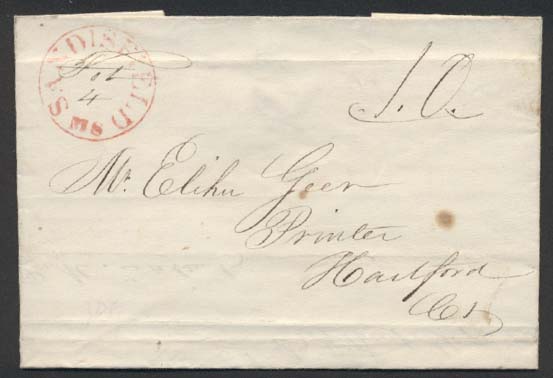 SANDISFIELD MS
Feb
4
10.
Mr. Elihu Geer
Printer
Hartford
Ct